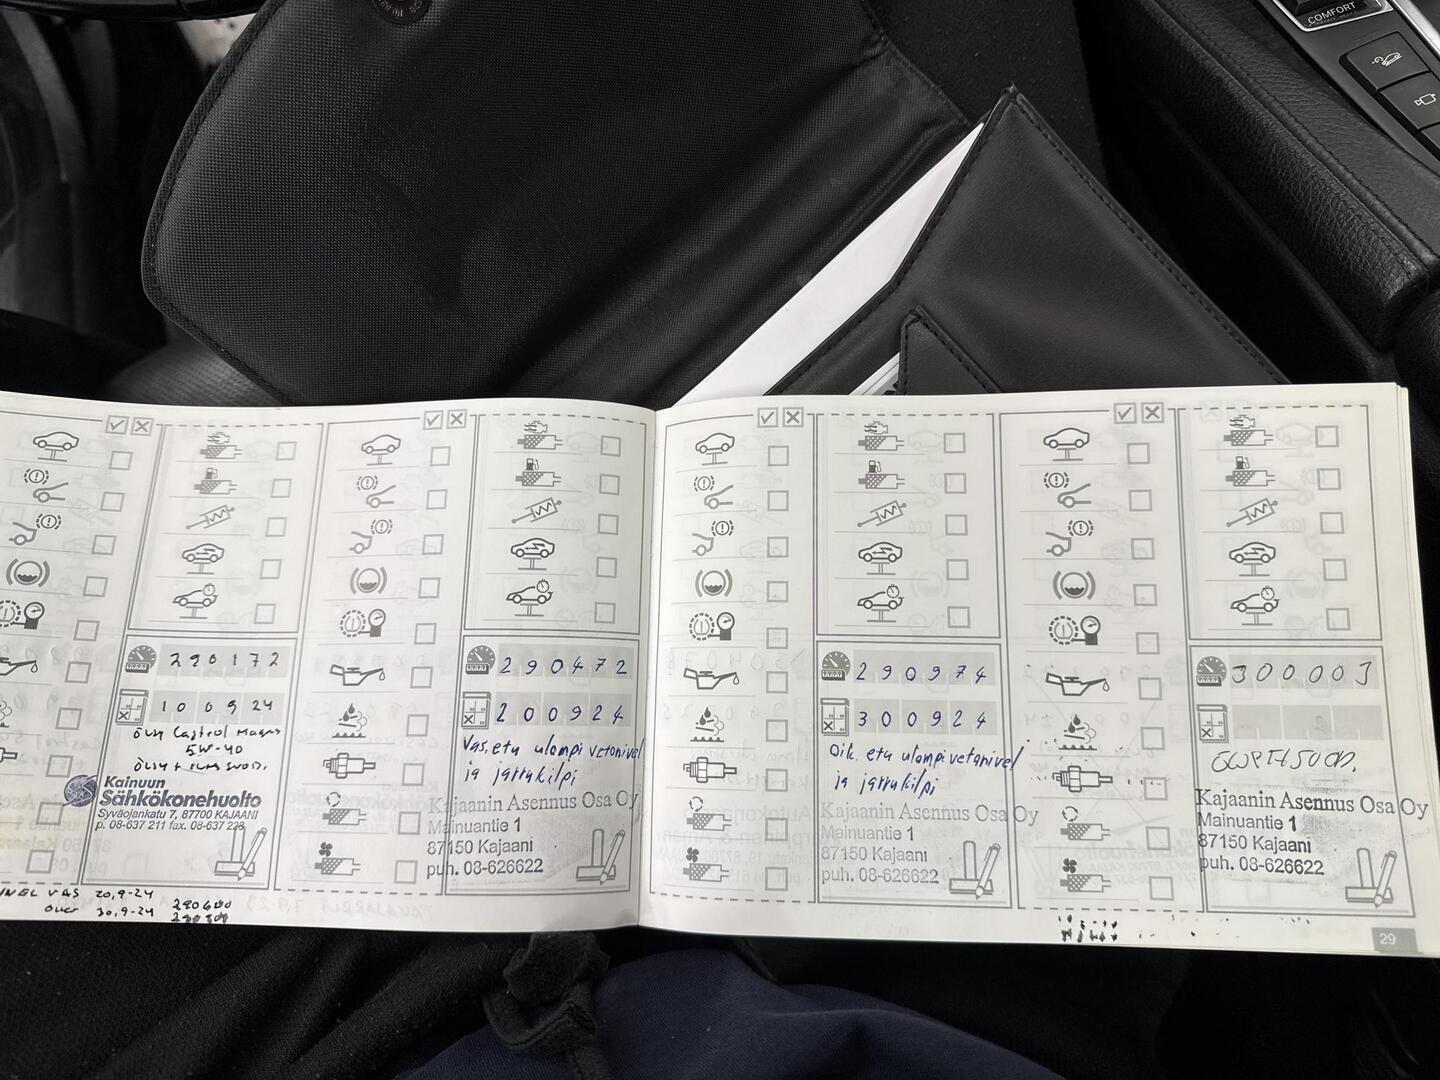 COMFORT
290172
100924
öljy Castrol Magn
5W-40
Kainuun
Sähkökonehuolto
Syväojankatu 7, 87700 KAJAANI
p. 08-637 211 fax. 08-637 223
VAS 20,9-24 290600
30,9-24
290472
200924
Vas. etu ulompi vetonivel
ja jarrukilpi
Kajaanin Asennus Osa Oy
Mainuantie 1
87150 Kajaani
puh. 08-626622
290974
300924
Oik. etu ulompi vetonivel
ja jarrukilpi
Kajaanin Asennus Osa Oy
Mainuantie 1
87150 Kajaani
puh. 08-626622
300003
Kajaanin Asennus Osa Oy
Mainuantie 1
87150 Kajaani
puh. 08-626622
29